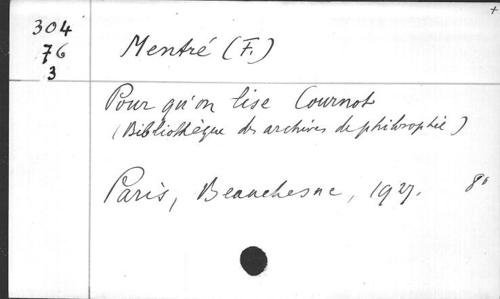 304
76
3
Mentré (F.)
Pour qu'on lise Cournot
(Bibliothèque des archives de philosophie)
Paris, Beauchesne, 1927. 8°